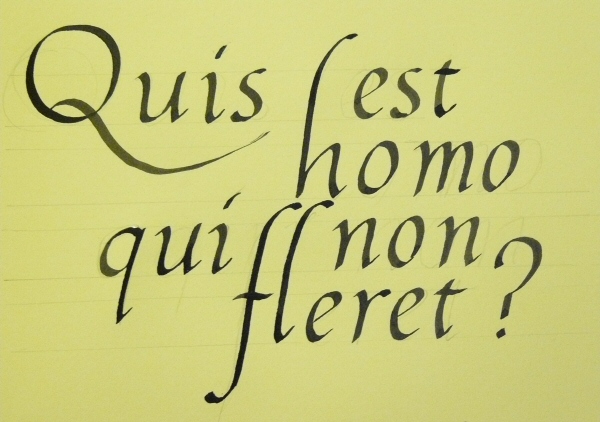 Quis est
homo
qui non
fleret?